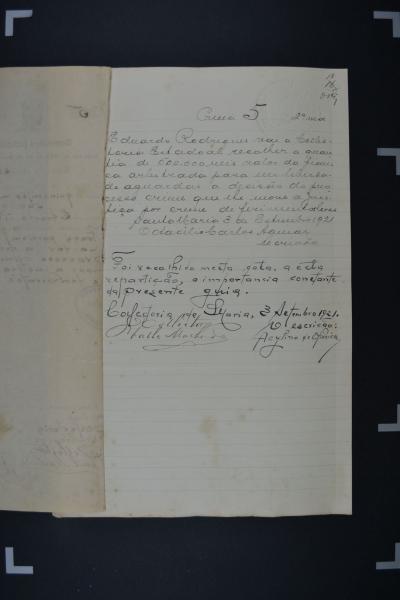 5 2ª via
Eduardo Rodrigues vae a Collec-
toria Estadoal recolher a quan-
tia de 600.000 reis valor da fian-
ça arbitrada para em liberda-
de aguardar a decisão do pro-
cesso crime que lhe move a jus-
tiça por crime de ferimentos leves
Santa Maria 3 de Setembro 1921
Octacilio Carlos Aguiar
Escrivão
Foi recolhido nesta data, a esta
repartição, a importancia constante
da presente guia.
Collectoria de S. Maria, 3 Setembro 1921.
O Collector O escrivão: